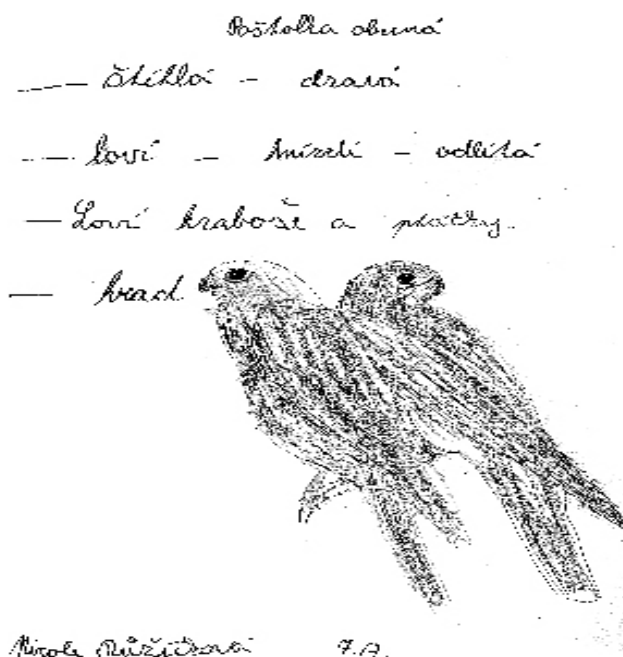 Poštolka obecná
štíhlá - dravá
loví - hnízdí - odlítá
Loví hraboše a ptáčky.
hrad
Nicole Růžičková 7.A.